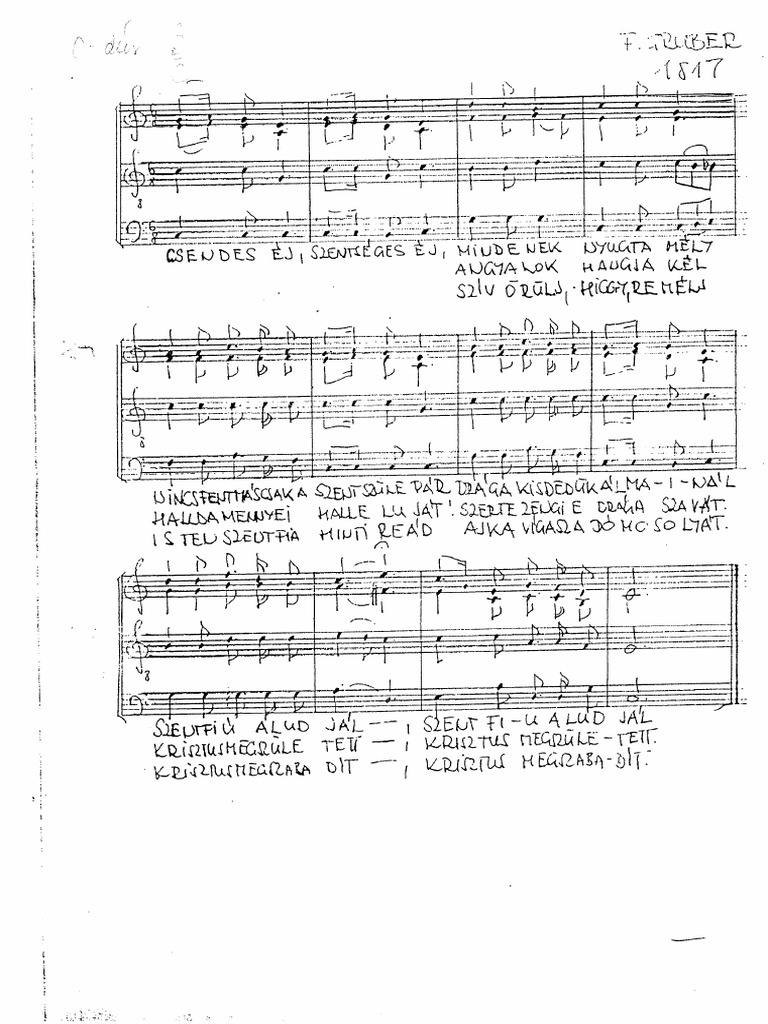 C-dúr
F. GRUBER
1817
CSENDES ÉJ, SZENTSÉGES ÉJ, MINDENEK NYUGTA MÉLY
ANGYALOK HANGJA KÉL
SZÍV ÖRÜLJ, HIGGY, REMÉLJ
8
NINCSFENTMÁSCSAKA SZENTSZÜLE PÁR DRÁGA KISDEDÜKÁLMA-I-NÁL
HALLDAMENNYEI HALLE LUJÁT! SZERTEZENGI E DRÁGA SZAVÁT.
ISTENSZENTFIA HINTI REÁD AJKA VIGASZADÓ MO-SOLYÁT.
8
SZENTFIÚ ALUD JÁL —, SZENT FI-Ú ALUD JÁL
KRISZTUSMEGRÜLE TETT —, KRISZTUS MEGRÜLE-TETT.
KRISZTUSMEGSZABA DÍT —, KRISZTUS MEGSZABA-DÍT.
8